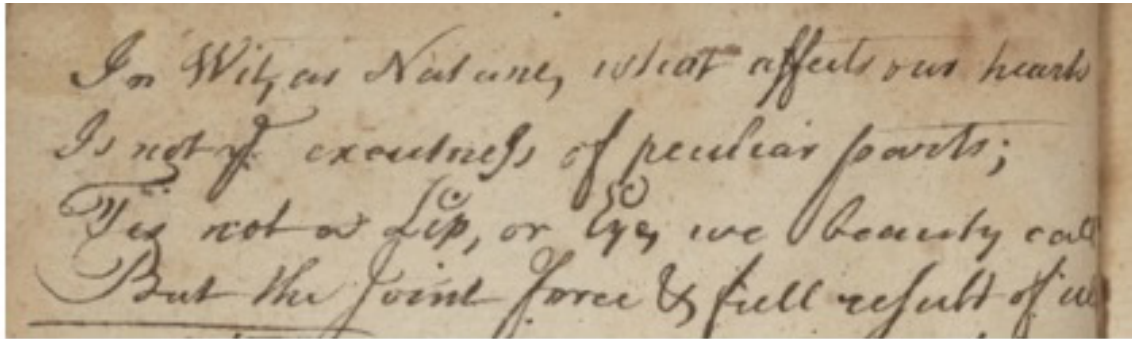 In Wit, as Nature, what affects our hearts
Is not ye exactness of peculiar parts;
Tis not a Lip, or Eye, we beauty call
But the Joint force & full result of all